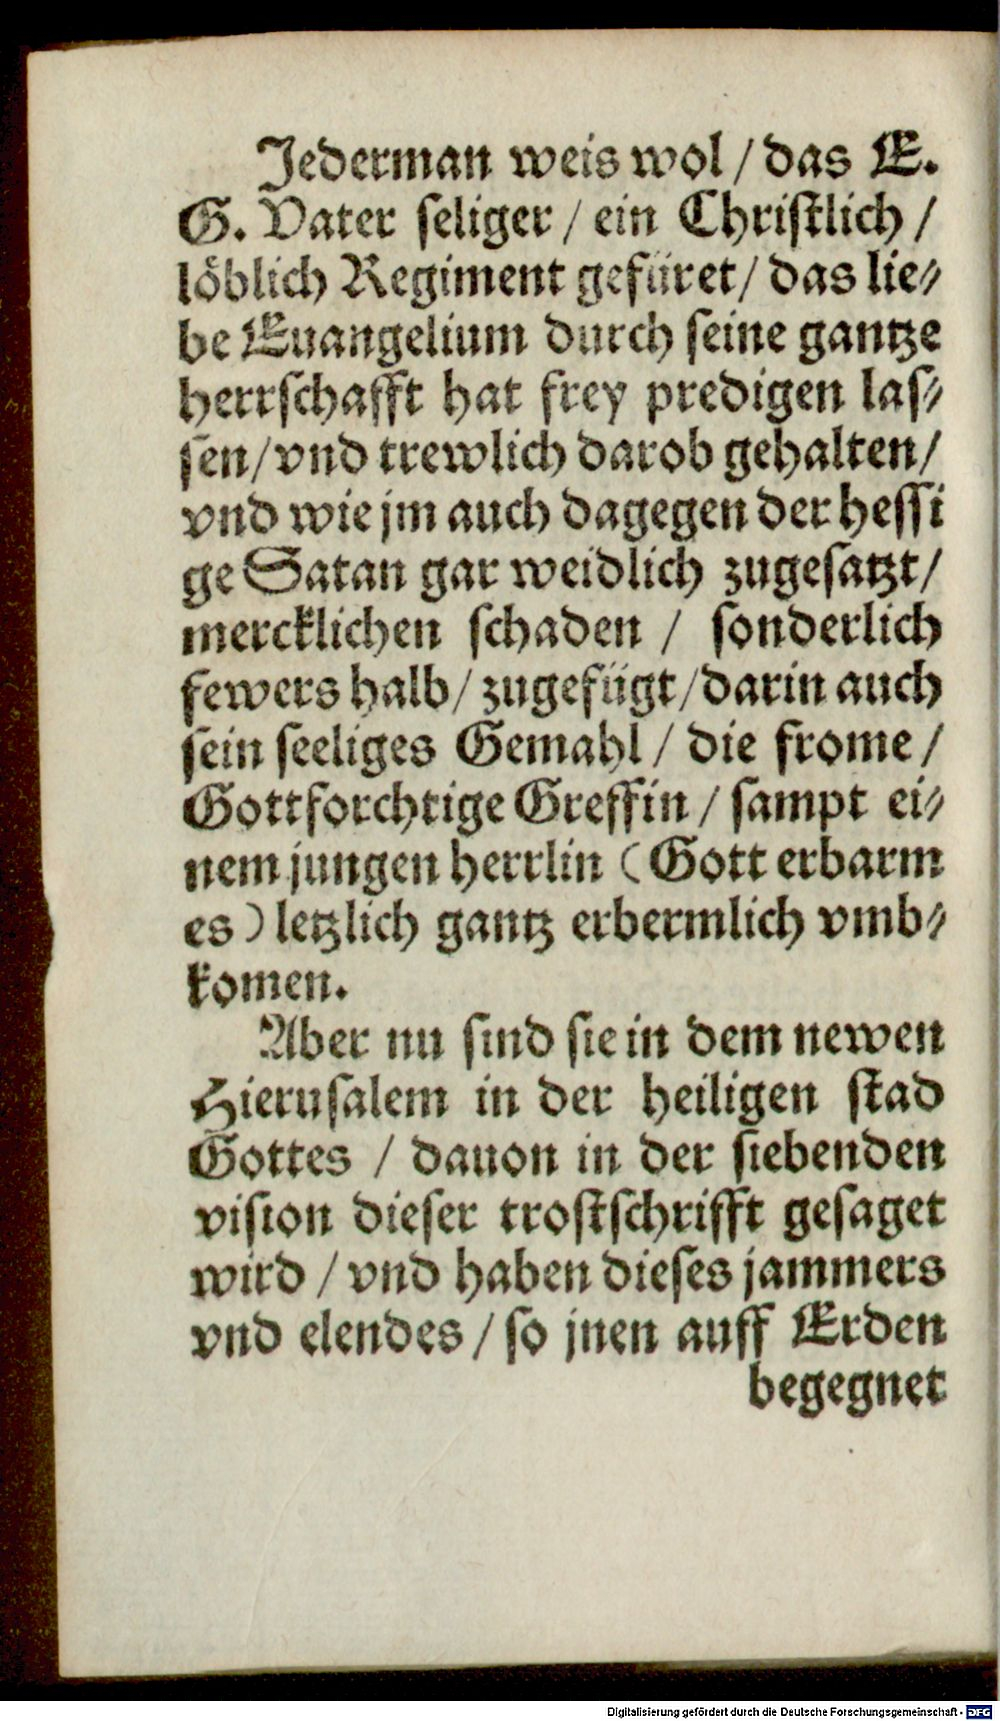 Jederman weis wol / das E.
G. Vater seliger / ein Christlich /
löblich Regiment gefüret / das lie⸗
be Euangelium durch seine gantze
herrschafft hat frey predigen las⸗
sen / vnd trewlich darob gehalten /
vnd wie jm auch dagegen der hessi
ge Satan gar weidlich zugesatzt /
mercklichen schaden / sonderlich
fewers halb / zugefügt / darin auch
sein seeliges Gemahl / die frome /
Gottforchtige Greffin / sampt ei⸗
nem jungen herrlin (Gott erbarm
es) letzlich gantz erbermlich vmb⸗
komen.
Aber nu sind sie in dem newen
Hierusalem in der heiligen stad
Gottes / dauon in der siebenden
vision dieser trostschrifft gesaget
wird / vnd haben dieses jammers
vnd elendes / so jnen auff Erden
begegnet
Digitalisierung gefördert durch die Deutsche Forschungsgemeinschaft - DFG